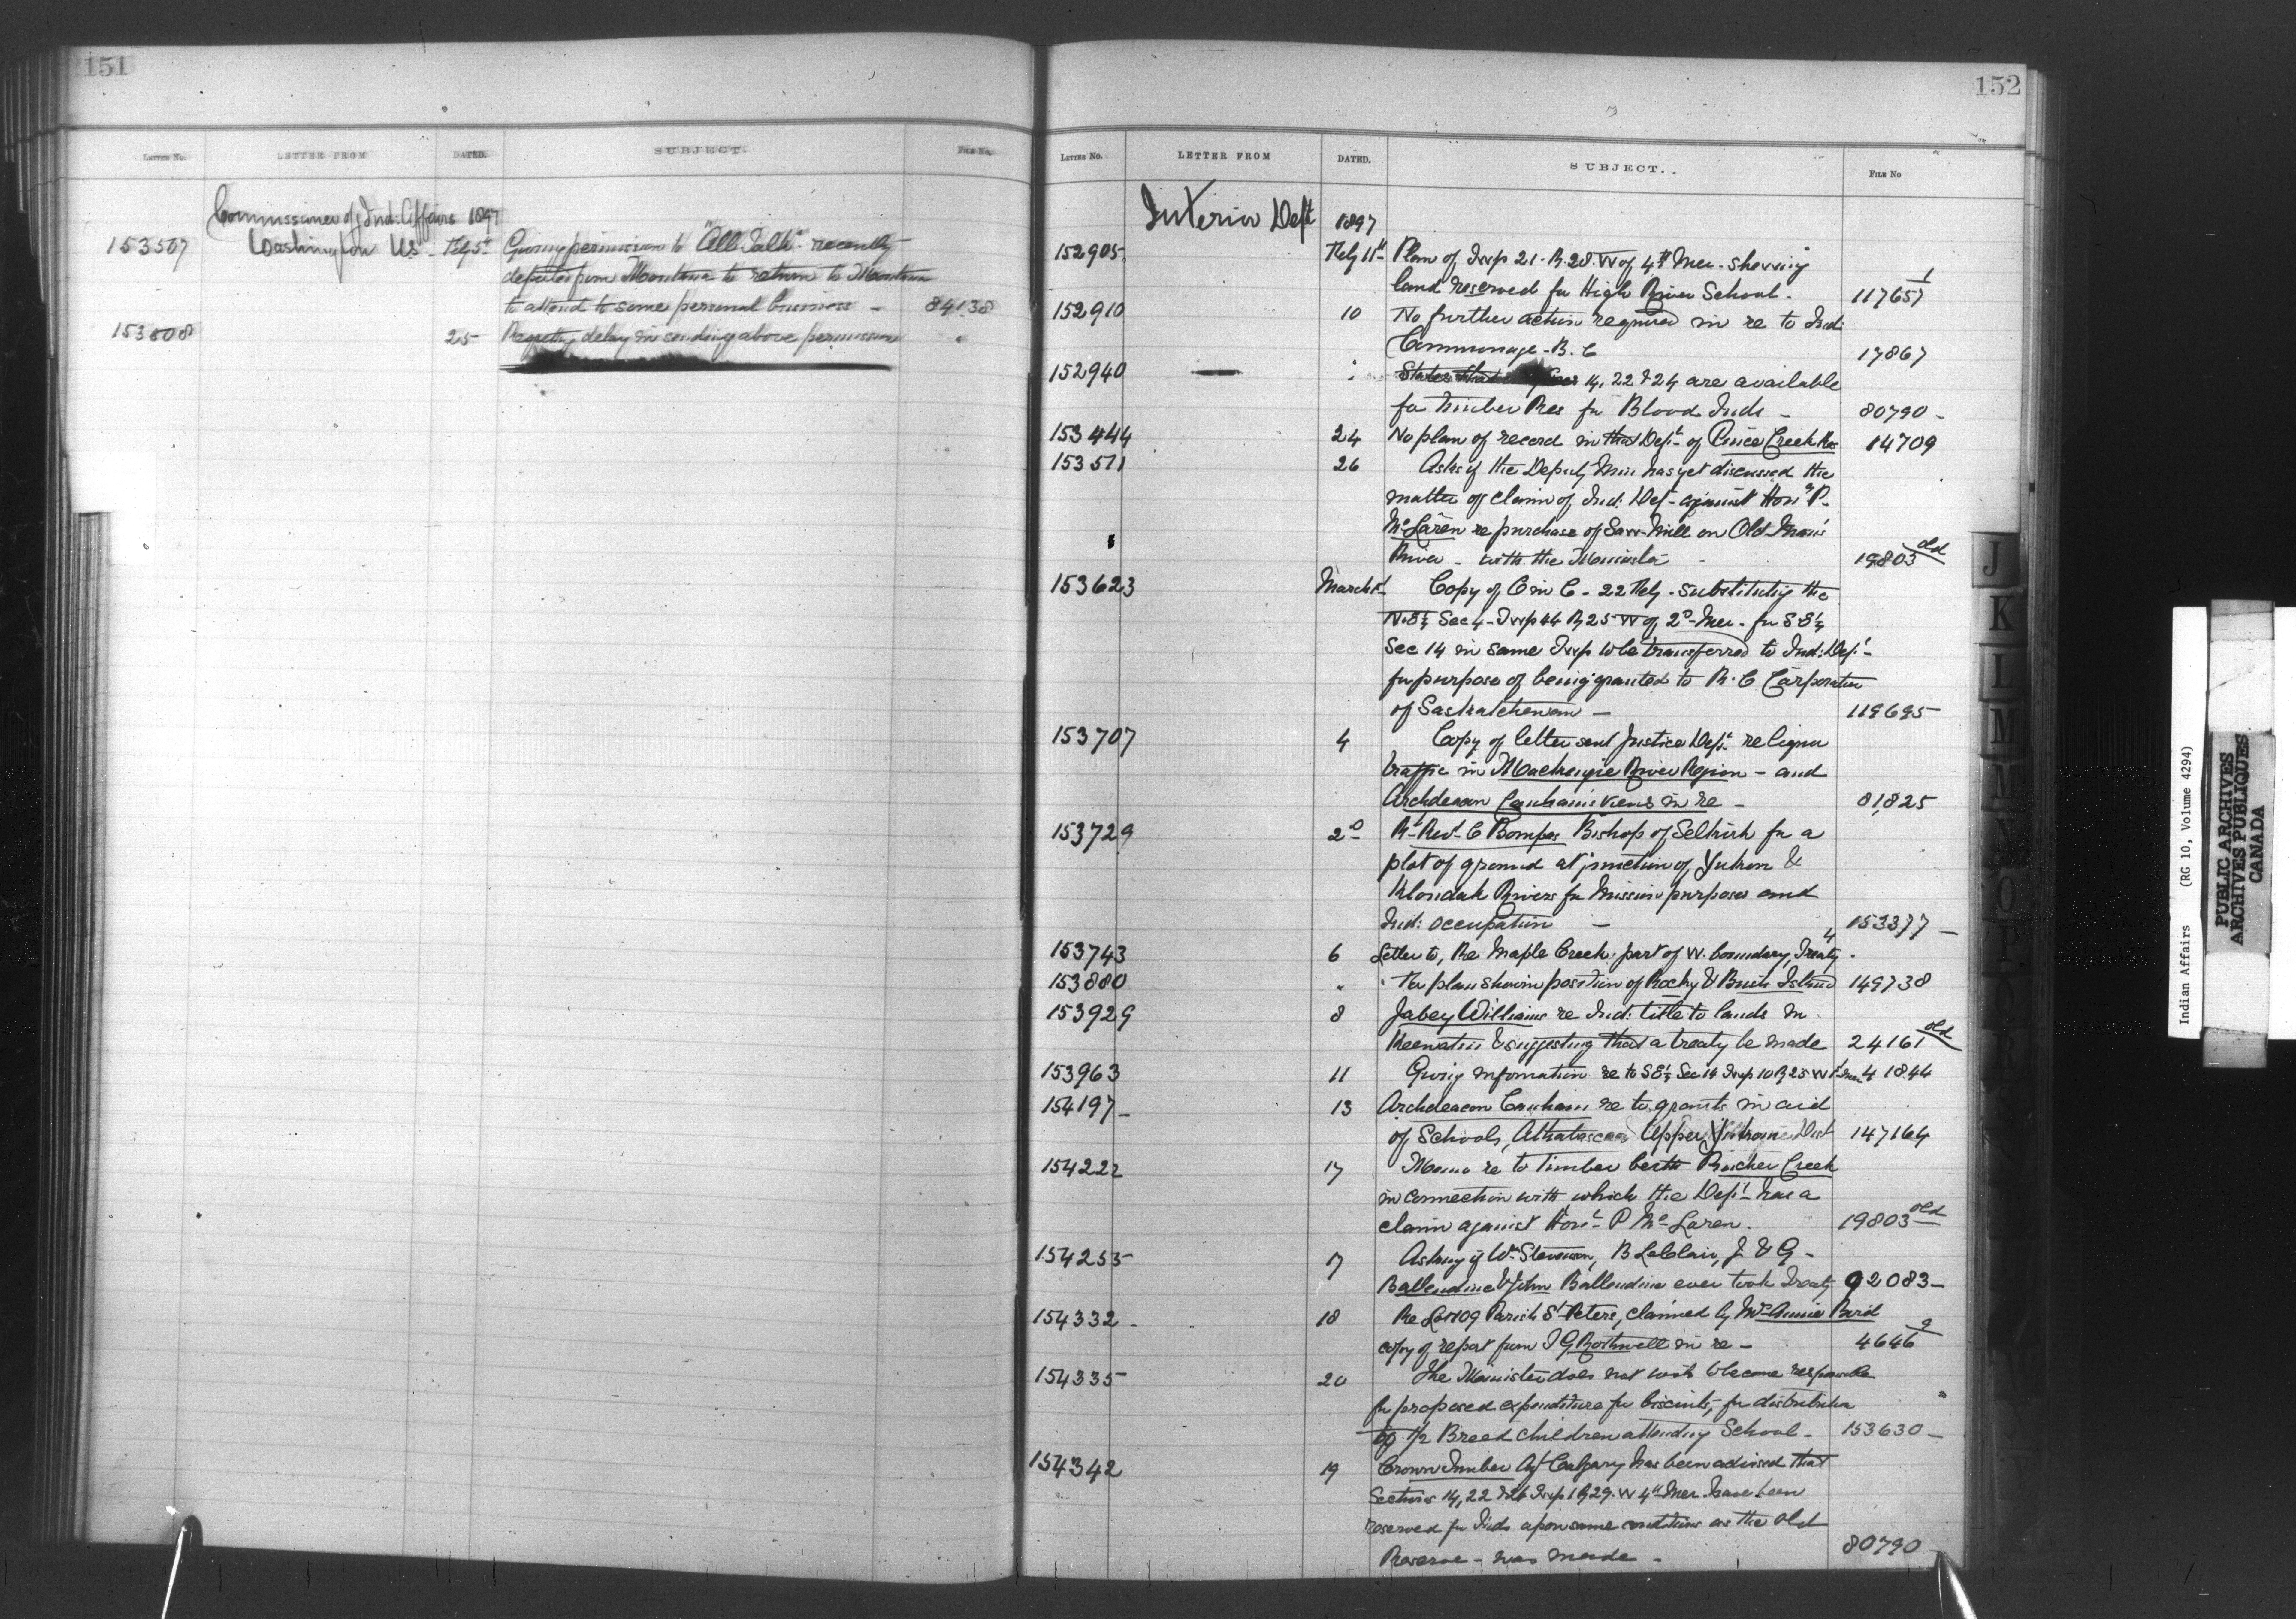 151
LETTER NO. LETTER FROM DATED. SUBJECT. FILE NO.
Commissioner of Ind: Affairs 1897
153507 Washington US - Feby 5th Giving permission to "All Talk" recently
deported from Montana to return to Montana
to attend to some personal business - 84138
153508 25 Regrets delay in sending above permission "
152
LETTER NO. LETTER FROM DATED. SUBJECT. FILE NO
Interior Dept 1897
152905 Feby 11th Plan of Twp 21. R. 28. W of 4th Mer. showing
land reserved for High River School. 117657 1
152910 10 No further action required in re to Ind:
Commonage - B. C 17867
152940 — " States that Secs 14, 22 & 24 are available
for timber Res for Blood Inds - 80790 -
153444 24 No plan of record in that Dept of Pince Creek Res 14709
153511 26 Asks if the Deputy Min has yet discussed the
matter of claim of Ind: Dept - against Hon. P.
McLaren re purchase of Saw-Mill on Old Man's
River - with the Minister - 19803 old
153623 March 1st Copy of O in C - 22 Feby - substituting the
N.E¼ Sec 4 - Twp 44 R 25 W of 2d Mer. for S E¼
Sec 14 in same Twp to be transferred to Ind: Dept -
for purpose of being granted to R. C Corporation
of Saskatchewan - 119695
153707 4 Copy of letter sent Justice Dept. re liquor
traffic in Mackenzie River Region - and
Archdeacon Canham's views in re - 81,825
153729 2d Rt Revd C Bompas Bishop of Selkirk for a
plot of ground at junction of Yukon &
Klondak Rivers for Mission purposes and
Ind: occupation - 153377 -
153743 6 Letter to, Re Maple Creek: part of W. boundary, Treaty 4 .
153880 " " For plan shown position of Rocky & Bush Island 149738
153929 8 Jabey Williams re Ind: title to lands in
Keewatin & suggesting that a treaty be made 24161 old
153963 11 Giving information re to S E¼ Sec 14 Twp 10 R 25 W 1st Mer 41844
154197 - 13 Archdeacon Canham re to grants in aid
of Schools, Athabascaa Upper Yukon Dist 147164
154222 17 Memo re to timber berth Pincher Creek
in connection with which the Dept has a
claim against Hon. P McLaren. 19803 old
154255 17 Asking if Wm Stevenson, B LeClair, J & G -
Ballendine & John Ballendine ever took Treaty 92083 -
154332 - 18 Re Lot 109 Parish St Peters, claimed by Mrs Annie Bird
copy of report from T G Rothwell in re - 4646 9
154335 20 The Minister does not wish to become responsible
for proposed expenditure for biscuits, for distribution
to ½ Breed children attending School - 153630 -
154342 19 Crown Timber Agt Calgary has been advised that
Sections 14, 22 & 24 Twp 1 R 29. W 4th Mer. have been
reserved for Inds upon same conditions as the old
Reserve - was made - 80790
J
K
L
M
M
N
O
P
Q
R
Indian Affairs (RG 10, Volume 4294)
PUBLIC ARCHIVES
ARCHIVES PUBLIQUES
CANADA